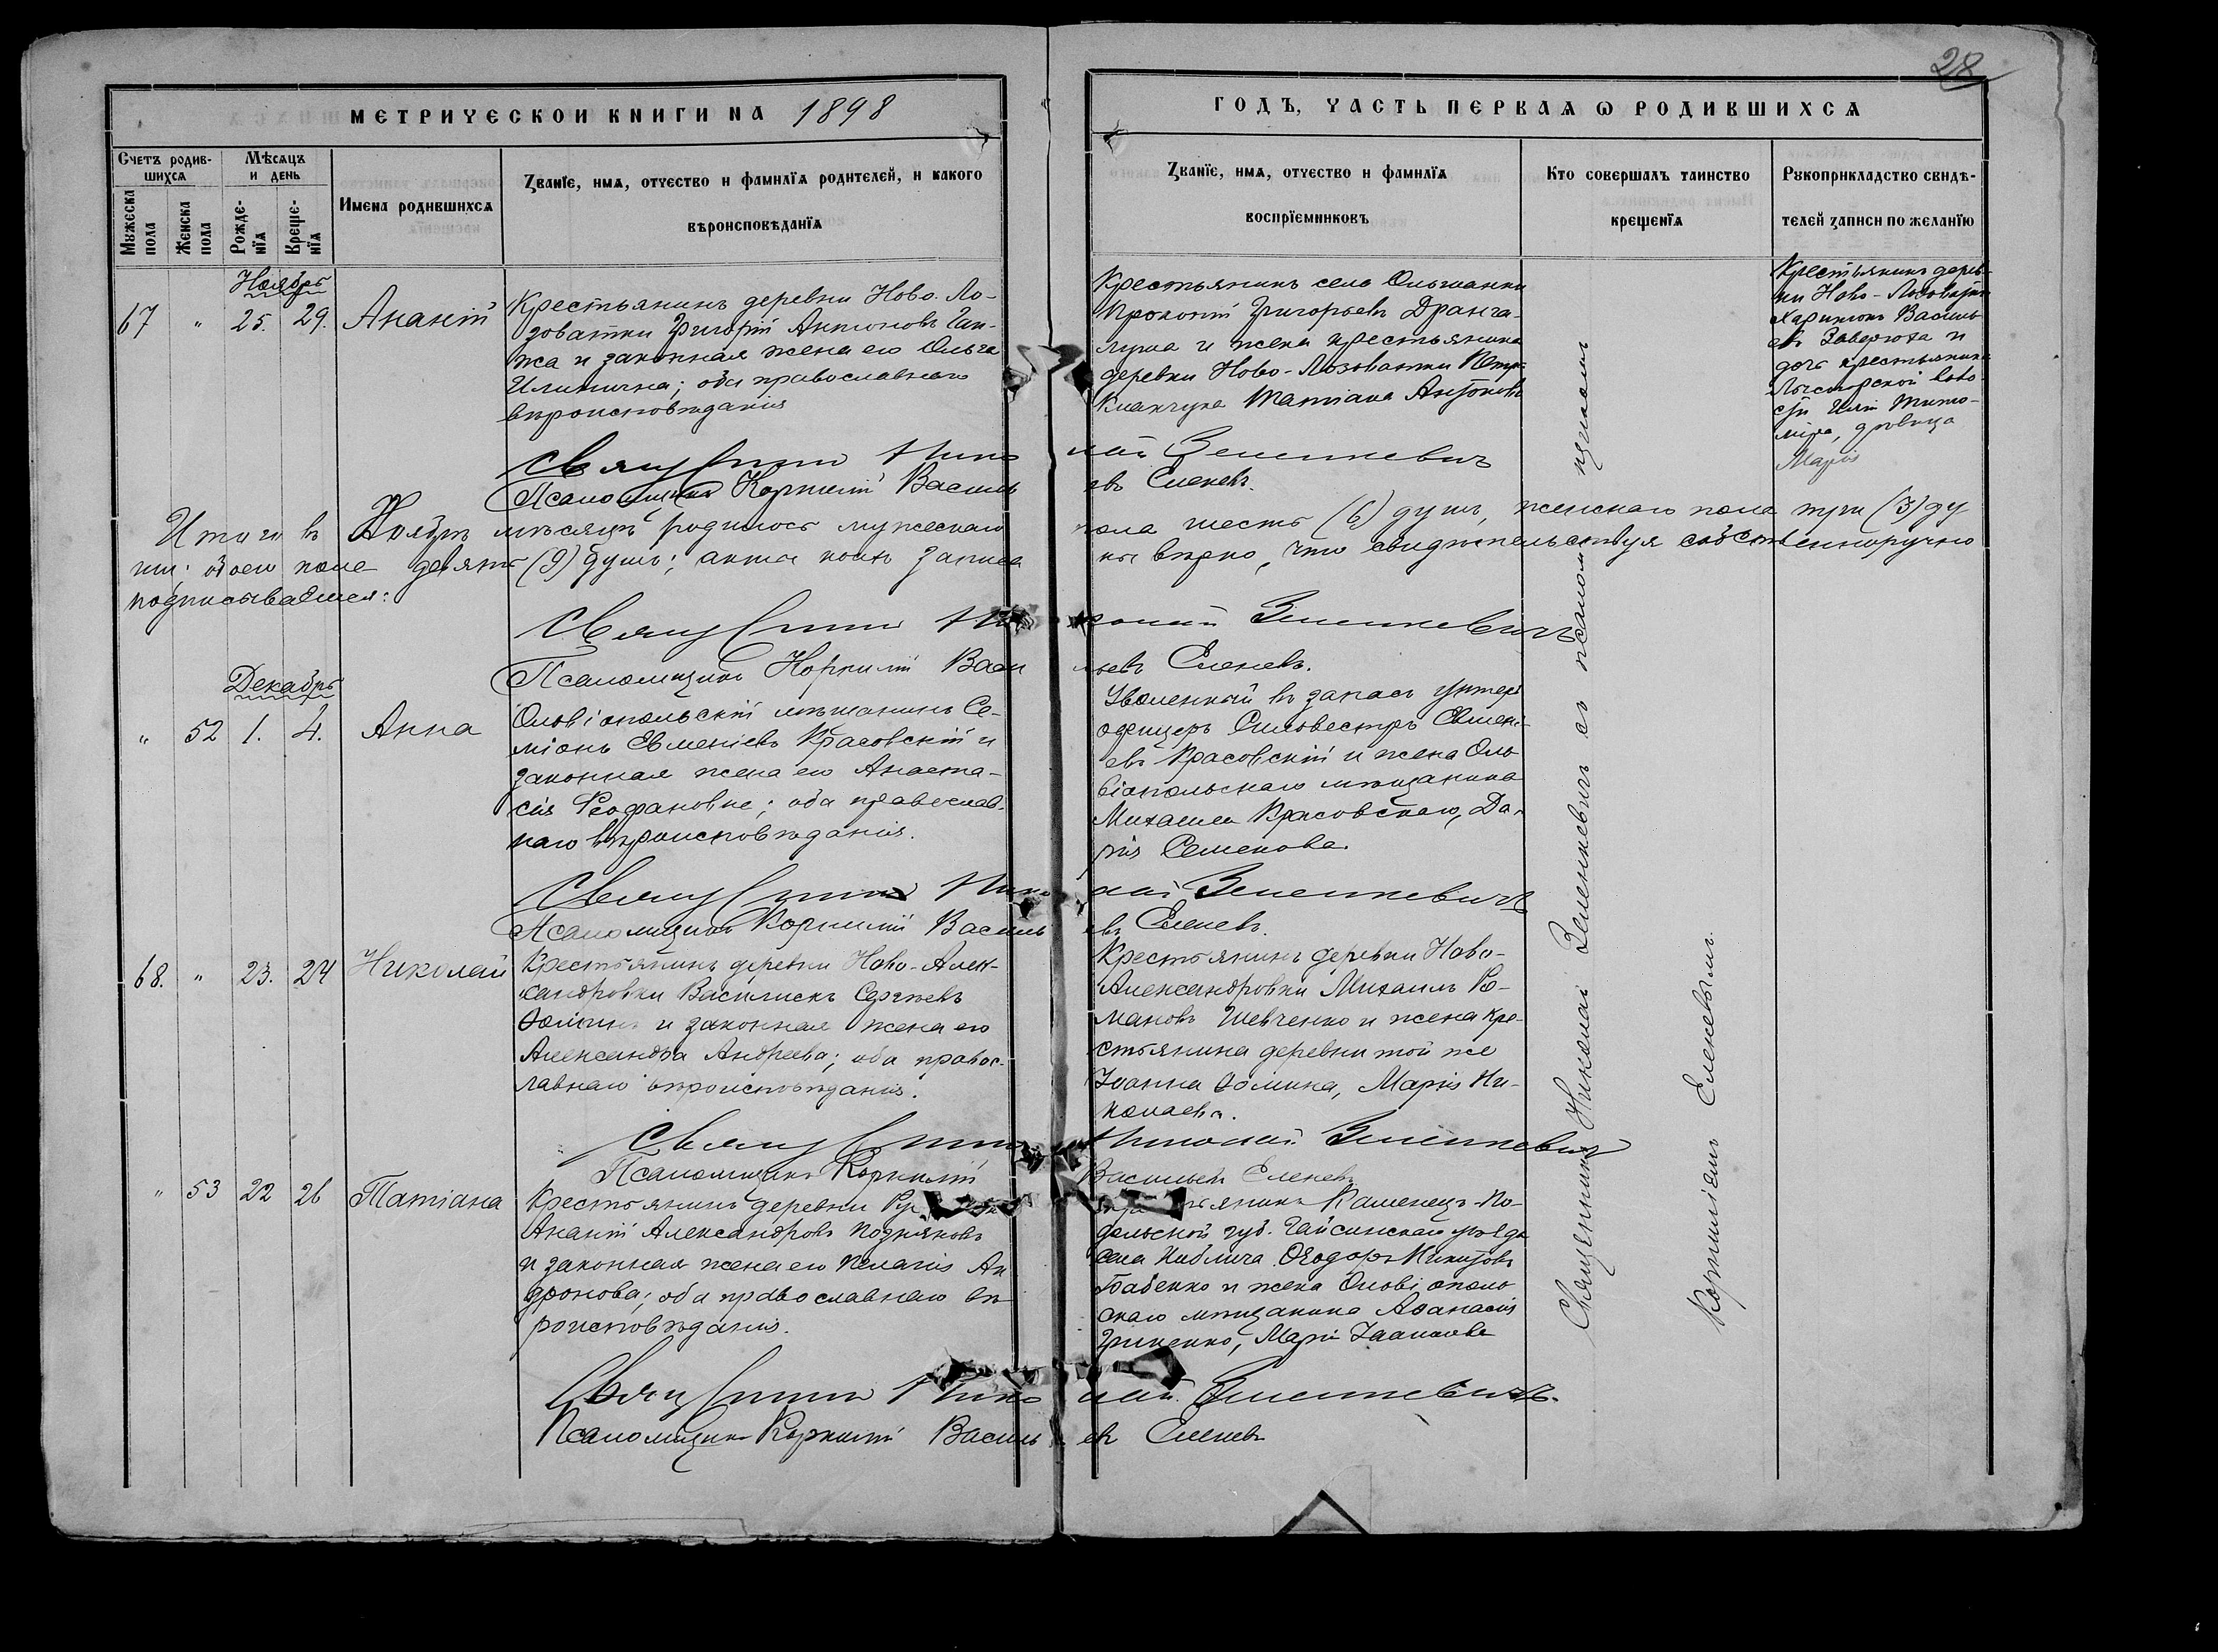 28
МЕТРИЧЕСКОЙ КНИГИ НА 1898
ГОДЪ, ЧАСТЬ ПЕРВАЯ Ѡ РОДИВШИХСЯ
Счетъ родив-
шихся
Мѣсяцъ
и день
Мужеска
пола
Женска
пола
Рожде-
нїя
Креще-
нїя
Имена родившихся
Званїе, имя, отчество и фамилїя родителей, и какого
вѣроисповѣданїя
Званїе, имя, отчество и фамилїя
воспрїемниковъ
Кто совершалъ таинство
крещенїя
Рукоприкладство свидѣ-
телей записи по желанїю
Ноябрь
67 " 25. 29. Ананій
Крестьянинъ деревни Ново-Ло-
зоватки Григорій Антоновъ Ган-
жа и законная жена его Ольга
Илиична; оба православнаго
вѣроисповѣданія
Крестьянинъ села Ольшанки
Прокопій Григорьевъ Дранга-
и жена крестьянина
деревни Ново-Лозоватки Петра
Татіана Антонова
Крестьянинъ дерев-
ни Ново-Лозоватки
Харитонъ Василь-
евъ и
дочь крестьянина
воло-
сти
дѣвица
Марія
Священникъ Николай Зеленкевичъ
Псаломщикъ Корнилій Васильевъ Еленевъ.
Итого въ Ноябрѣ мѣсяцѣ родилось мужескаго пола шесть (6) душъ, женскаго пола три (3) ду
ши; обоего пола девять (9) душъ; акты коихъ записаны вѣрно, что свидѣтельствуя собственноручно
подписываемся:
Священникъ Николай Зеленкевичъ
Псаломщикъ Корнилій Васильевъ Еленевъ.
Декабрь
" 52 1. 4. Анна
Ольвіопольскій мѣщанинъ Се-
міонъ Евменіевъ Красовскій и
законная жена его Анаста-
сія Феофановна; оба православ-
наго вѣроисповѣданія.
Уволенный въ запасъ унтеръ
офицеръ Сильвестръ Евмені-
евъ Красовскій и жена Оль
віопольскаго мѣщанина
Михаила Красовскаго, Да-
рія Семенова.
Священникъ Николай Зеленкевичъ
Псаломщикъ Корнилій Васильевъ Еленевъ.
68. " 23. 24 Николай
Крестьянинъ деревни Ново-Алек-
сандровки Василискъ Сергѣевъ
Ѳоминъ и законная жена его
Александра Андреева; оба правос-
лавнаго вѣроисповѣданія.
Крестьянинъ деревни Ново-
Александровки Михаилъ Ро-
мановъ Шевченко и жена кре-
стьянина деревни той же
Іоанна Ѳомина, Марія Ни-
колаева.
Священникъ Николай Зеленкевичъ
Псаломщикъ Корнилій Васильевъ Еленевъ
" 53 22 26 Татіана
Крестьянинъ деревни
Ананій Александровъ Поздняковъ
и законная жена его Пелагія Ан
дронова; оба православнаго вѣ
роисповѣданія.
Каменецъ-По-
дольской губ. Гайсинскаго уѣзда
села Киблича Ѳеодоръ Никитовъ
Бабенко и жена Ольвіополь
скаго мѣщанина Аѳанасія
Гриценко, Марія
Священникъ Николай Зеленкевичъ.
Псаломщикъ Корнилій Васильевъ Еленевъ
Священникъ Николай Зеленкевичъ съ псаломщикомъ
Корниліемъ Еленевымъ.